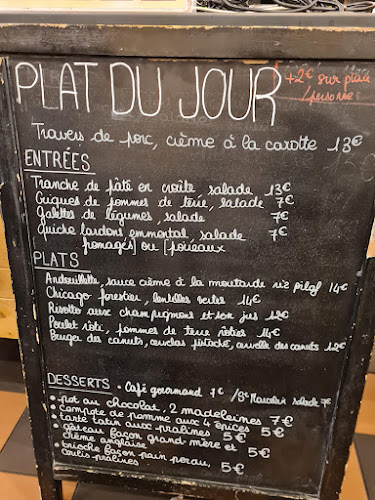 PLAT DU JOUR
+2€ sur place
/personne
Travers de porc, crème à la carotte 13€
ENTRÉES
Tranche de pâté en croûte, salade 13€
Criques de pommes de terre, salade 7€
Galettes de légumes, salade 7€
Quiche lardons emmental salade 7€
fromages] ou [poireaux
PLATS
Andouillette, sauce crème à la moutarde riz pilaf 14€
Chicago forestier, lentilles vertes 14€
Risotto aux champignons et son jus 12€
Poulet rôti, pommes de terre rôties 14€
Burger des canuts, cervelas pistaché, cervelle des canuts 12€
DESSERTS • Café gourmand 7€ /
salade 7€
• pot au chocolat, 2 madeleines 7€
• compote de pomme aux 4 épices 5€
• tarte tatin aux pralines 5€
• gâteau façon grand-mère et 5€
crème anglaise
• brioche façon pain perdu, 5€
coulis pralines